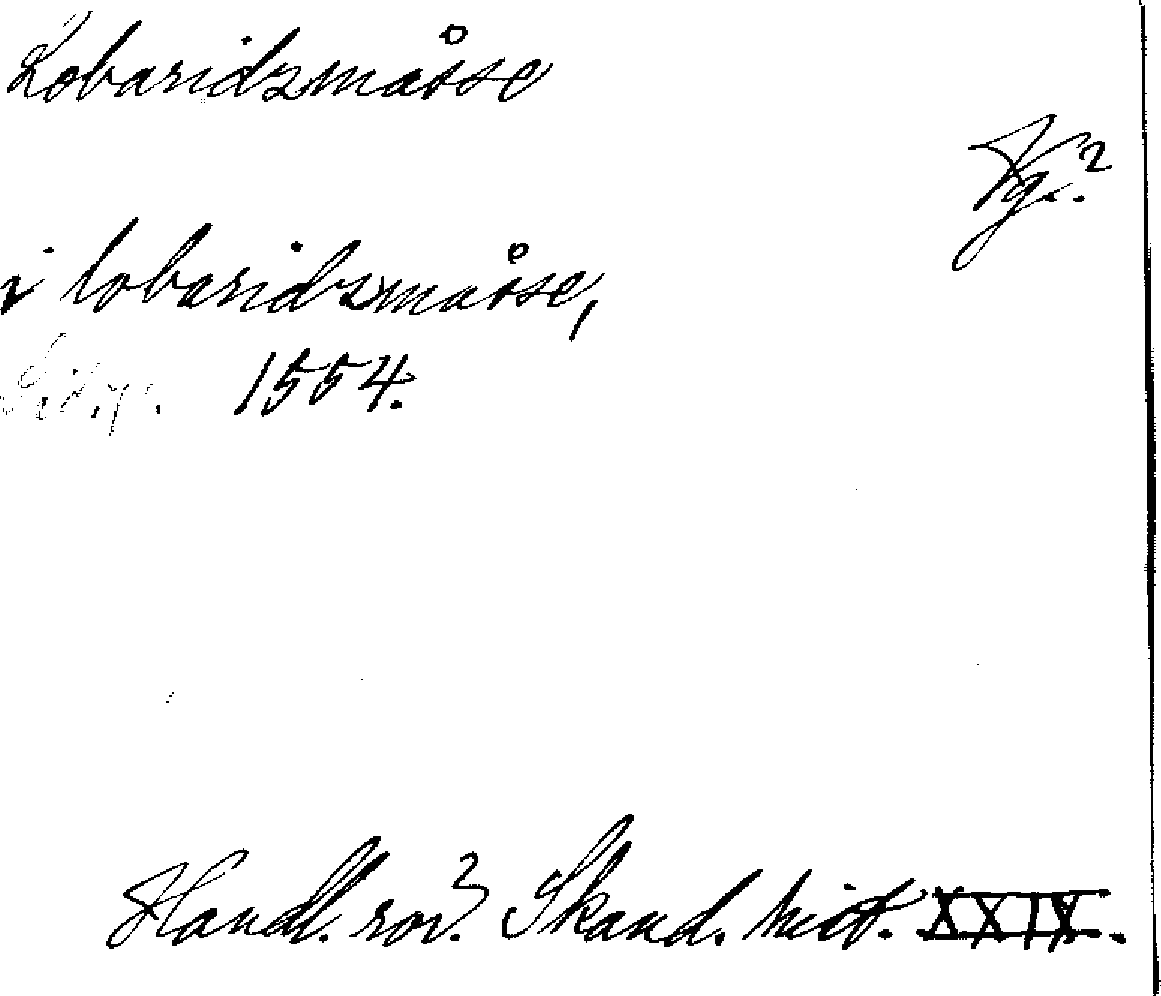 Lobaridzmåsse
Vg.?
i lobaridzmåsse,
1554.
Handl. rör. Skand. hist. XXIX.